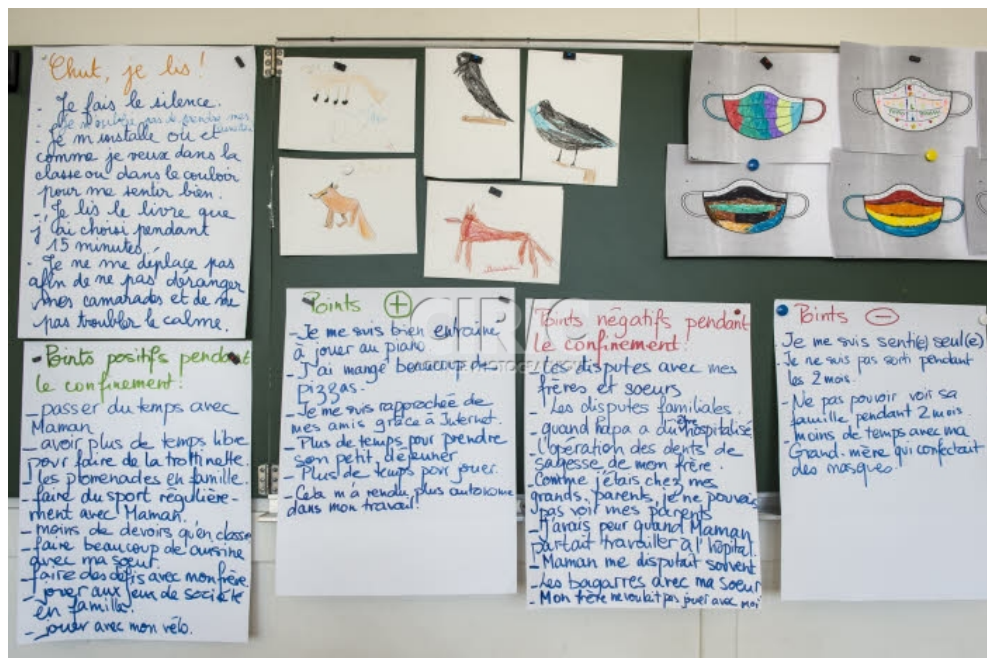 Chut, je lis !
- Je fais le silence.
- Je n'oublie pas de prendre mes
lunettes
- Je m'installe où et
comme je veux dans la
classe ou dans le couloir
pour me sentir bien.
- Je lis le livre que
j'ai choisi pendant
15 minutes.
- Je ne me déplace pas
afin de ne pas déranger
mes camarades et de ne
pas troubler le calme.
Points positifs pendant
le confinement :
- passer du temps avec
Maman
- avoir plus de temps libre
pour faire de la trottinette.
- les promenades en famille.
- faire du sport régulière-
ment avec Maman.
- moins de devoirs qu'en classe
- faire beaucoup de cuisine
avec ma soeur.
- faire des défis avec mon frère.
- jouer aux jeux de société
en famille.
- jouer avec mon vélo.
Points +
- Je me suis bien entraîné
à jouer au piano
- J'ai mangé beaucoup de
pizzas.
- Je me suis rapprochée de
mes amis grâce à Internet.
- Plus de temps pour prendre
son petit déjeuner
- Plus de temps pour jouer.
- Cela m'a rendu plus autonome
dans mon travail !
CIRIC
Points négatifs pendant
le confinement !
- Les disputes avec mes
frères et soeurs
- Les disputes familiales.
- quand Papa a dû être hospitalisé
- L'opération des dents de
sagesse de mon frère.
- Comme j'étais chez mes
grands-parents, je ne pouvais
pas voir mes parents
- J'avais peur quand Maman
partait travailler à l'hôpital.
- Maman me disputait souvent
- Les bagarres avec ma soeur
- Mon frère ne voulait pas jouer avec moi
Points -
Je me suis senti(e) seul(e)
- Je ne suis pas sorti pendant
les 2 mois.
- Ne pas pouvoir voir sa
famille pendant 2 mois.
- moins de temps avec ma
Grand-mère qui confectait
des masques.